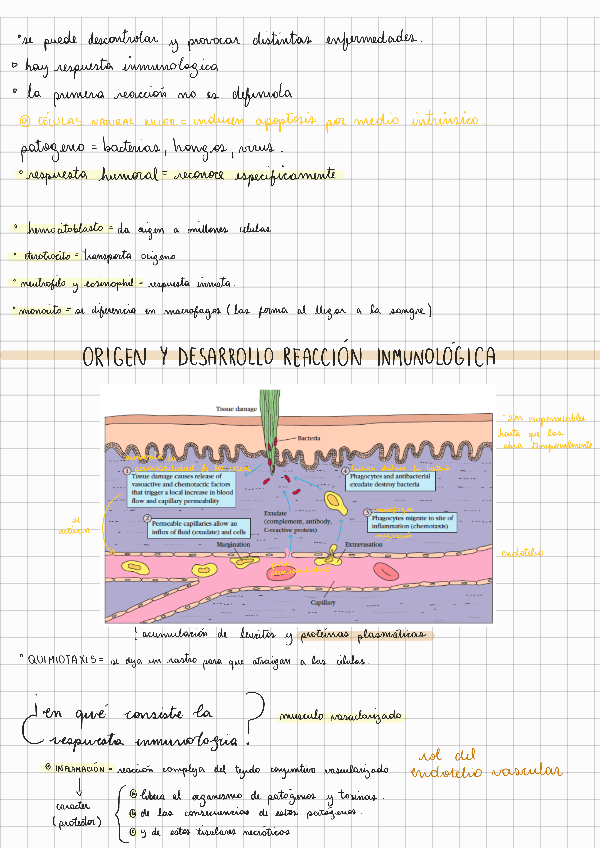 ° se puede descontrolar y provocar distintas enfermedades.
° hay respuesta inmunologica
° la primera reacción no es definida
CÉLULAS NATURAL KILLER = inducen apoptosis por medio intrínsico
patogeno = bacterias, hongos, virus.
° respuesta humoral = reconoce especificamente
° hemocitoblasto = da origen a millones células
= transporta oxigeno
° neutrofilo y eosinophil = respuesta innata.
° monocito = se diferencia en macrofagos (las forma al llegar a la sangre)
ORIGEN Y DESARROLLO REACCIÓN INMUNOLÓGICA
Tissue damage
Bacteria
son impermeables
hasta que las
abra temporalmente
1 Tissue damage causes release of
vasoactive and chemotactic factors
that trigger a local increase in blood
flow and capillary permeability
4
Phagocytes and antibacterial
exudate destroy bacteria
se
activan
2 Permeable capillaries allow an
influx of fluid (exudate) and cells
Exudate
(complement, antibody,
C-reactive protein)
3
Phagocytes migrate to site of
inflammation (chemotaxis)
Margination
Extravasation
endotelio
Capillary
acumulación de y proteínas plasmáticas
° QUIMIOTAXIS = se deja un rastro para que atraigan a las células.
¿en qué consiste la
respuesta inmunologia?
musculo vascularizado
INFLAMACIÓN = reacción compleja del tejido conjuntivo vascularizado
rol del
endotelio vascular
caracter
(protector)
libera al organismo de patógenos y toxinas.
de las consecuencias de estos patógenos.
y de estos tisulares necróticos